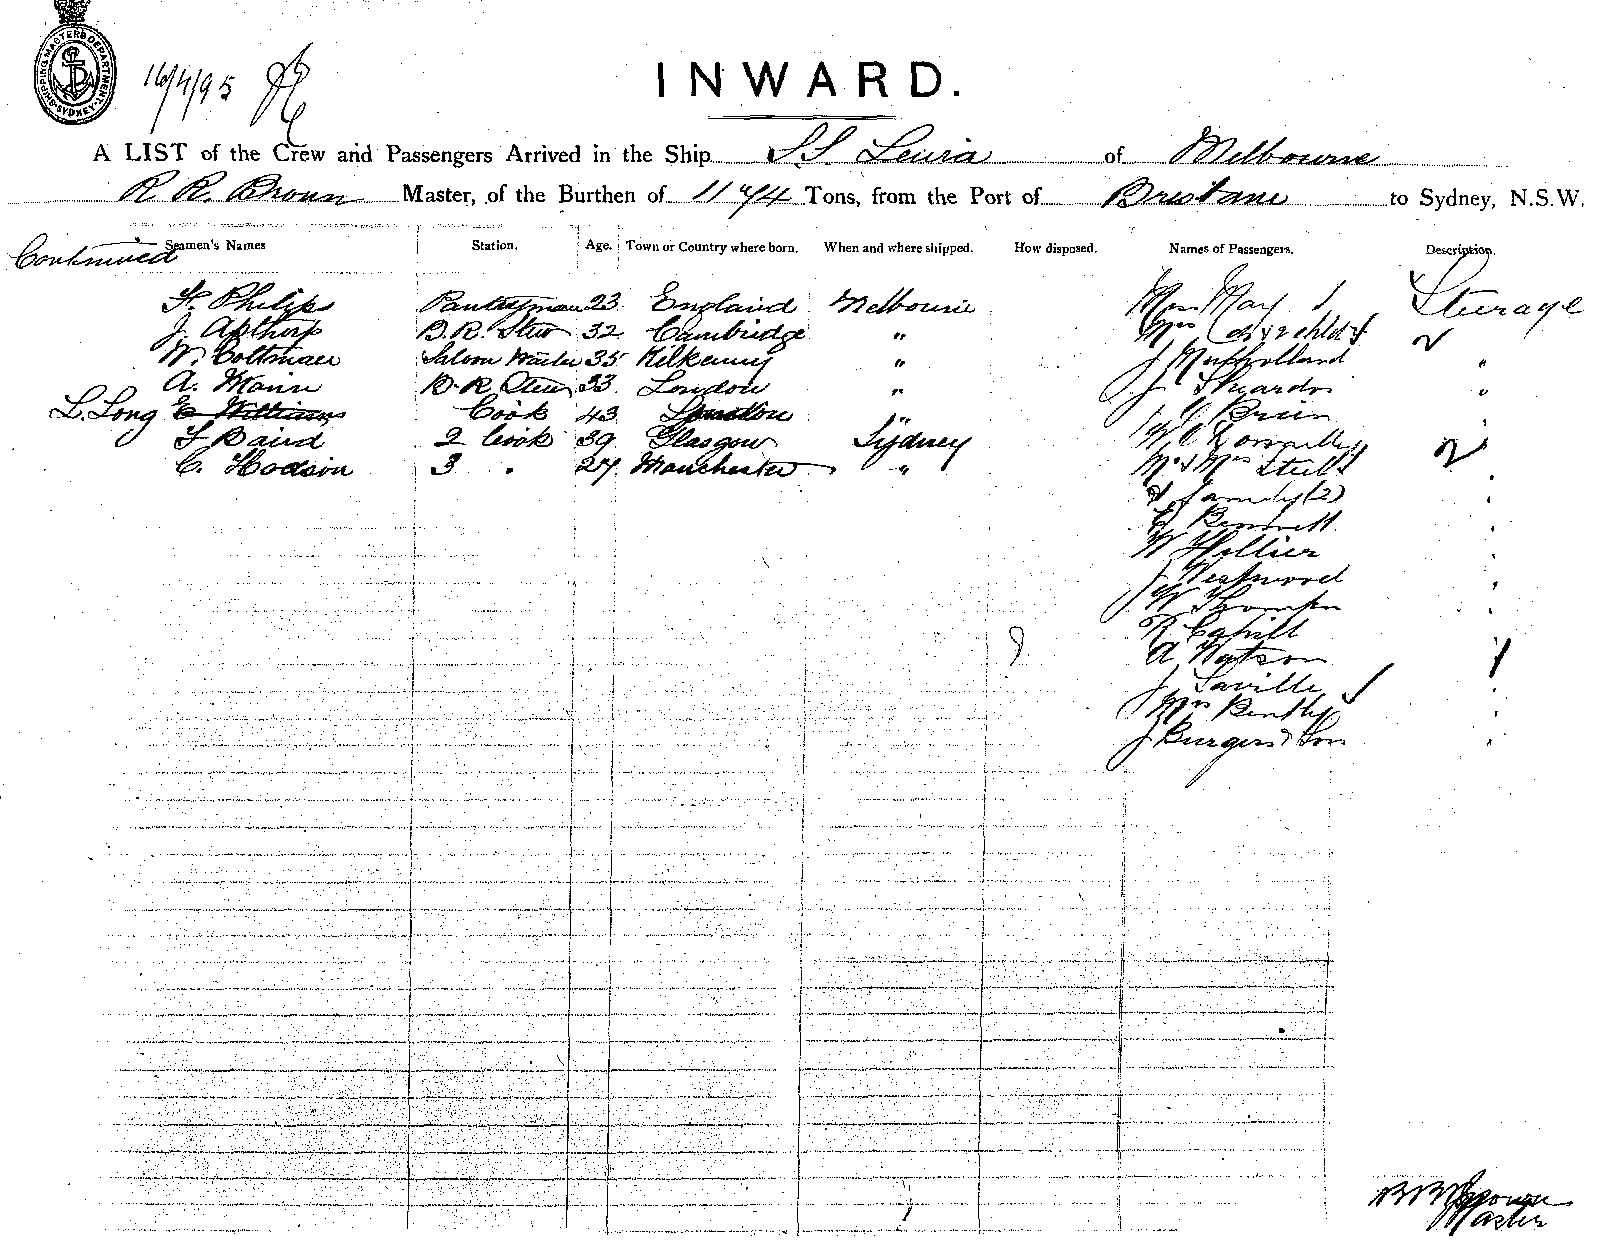 SHIPPING MASTERS DEPARTMENT SYDNEY
16/4/95
INWARD.
A LIST of the Crew and Passengers Arrived in the Ship S.S. Leura of Melbourne
R. R. Brown Master, of the Burthen of 1174 Tons, from the Port of Brisbane to Sydney, N.S.W.
Continued
Seamen's Names Station. Age. Town or Country where born. When and where shipped. How disposed. Names of Passengers. Description.
F. Philips Pantryman 23 England Melbourne Mrs May 1 Steerage
J. Apthorp B.R. Stew 32 Cambridge " Mrs
W. Coltman Saloon Waiter 35 Kilkenny " J Mulholland "
A. Mann B.R. Stew 33 London " J "
L. Long E Williams Cook 43 London " Brien
F Baird 2 Cook 39 Glasgow Sydney W
C. Hodson 3 " 27 Manchester " Mr & Mrs
& family (2)
Bennett
W Hollier
J Westwood
W Thompson
R Cahill
A Watson
J Saville
Mrs Bently
J Burgess & Son
Brown
Master